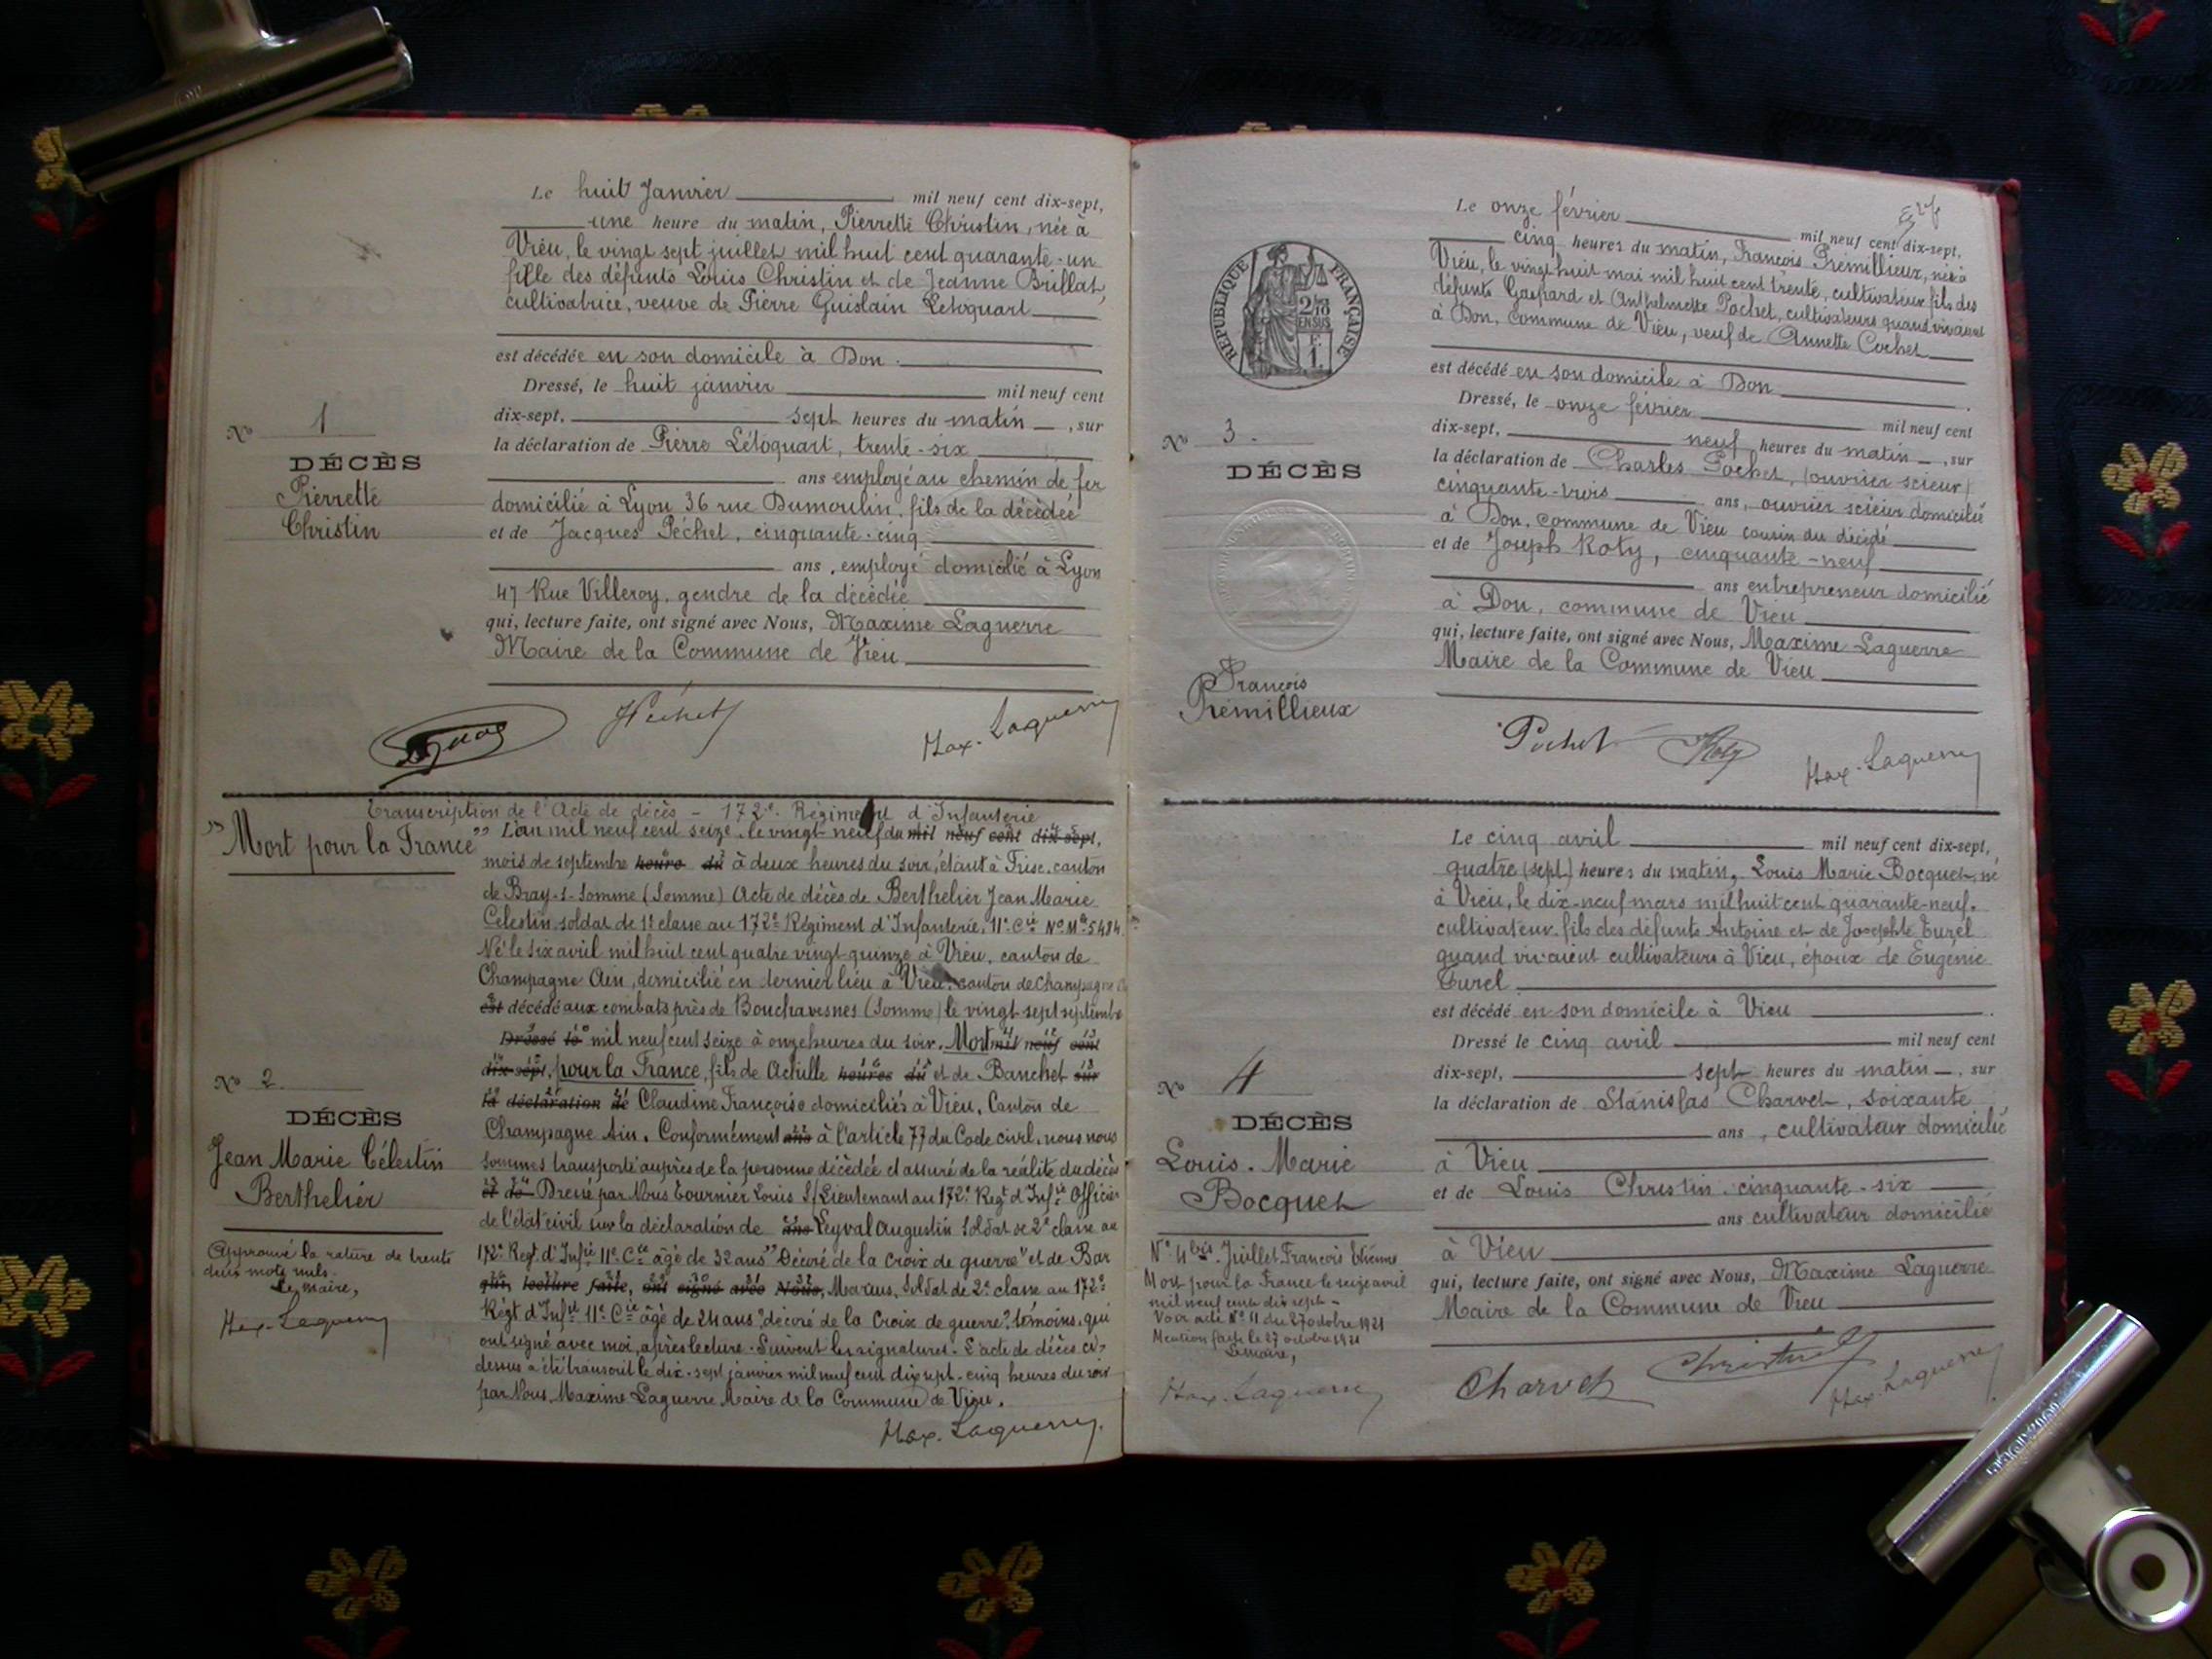 Le huit Janvier mil neuf cent dix-sept,
une heure du matin, Pierrette Christin, née à
Vieu, le vingt sept juillet mil huit cent quarante-un
fille des défunts Louis Christin et de Jeanne Brillat,
cultivatrice, veuve de Pierre Guislain Letoquart
est décédée en son domicile à Don.
Dressé, le huit janvier mil neuf cent
dix-sept, sept heures du matin, sur
la déclaration de Pierre Létoquart, trente-six
ans employé au chemin de fer
domicilié à Lyon 36 rue Dumoulin, fils de la décédée
et de Jacques Péchet, cinquante-cinq
ans, employé domicilié à Lyon
47 Rue Villeroy, gendre de la décédée
qui, lecture faite, ont signé avec Nous, Maxime Laguerre
Maire de la Commune de Vieu
N° 1
DÉCÈS
Pierrette
Christin
Péchet
Max. Laguerre
Transcription de l'Acte de décès - 172e Régiment d'Infanterie
"Mort pour la France"
L'an mil neuf cent seize, le vingt-neuf du mil neuf cent dix-sept,
mois de septembre heure du à deux heures du soir, étant à Frise, canton
de Bray-s-Somme (Somme) Acte de décès de Berthelier Jean Marie
Célestin, soldat de 1e classe au 172e Régiment d'Infanterie, 11e Cie No Mle 5484.
Né le six avril mil huit cent quatre vingt-quinze à Vieu, canton de
Champagne Ain, domicilié en dernier lieu à Vieu, canton de Champagne
est décédé aux combats près de Bouchavesnes (Somme) le vingt sept septembre
Dressé le mil neuf cent seize à onze heures du soir. Mort mil neuf cent
dix-sept, pour la France, fils de Achille heures du et de Banchet sur
la déclaration de Claudine Françoise domiciliés à Vieu, Canton de
Champagne Ain. Conformément ans à l'article 77 du Code civil, nous nous
sommes transporté auprès de la personne décédée et assuré de la réalité du décès
et de Dressé par Nous Tournier Louis S/Lieutenant au 172e Regt d'Infie Officier
de l'état civil sur la déclaration de ans Leyval Augustin soldat de 2e classe au
172e Regt d'Infie 11e Cie âgé de 32 ans "Décoré de la Croix de guerre" et de Bar
qui, lecture faite, ont signé avec Nous, Marius, Soldat de 2e classe au 172e
Régt d'Infie 11e Cie âgé de 24 ans "décoré de la Croix de guerre", témoins, qui
ont signé avec moi, après lecture. Suivent les signatures. L'acte de décès ci-
dessus a été transcrit le dix-sept janvier mil neuf cent dix sept-cinq heures du soir
par Nous, Maxime Laguerre Maire de la Commune de Vieu.
N° 2
DÉCÈS
Jean Marie Célestin
Berthelier
Approuvé la rature de trente
deux mots nuls.
Le Maire,
Max. Laguerre
Max. Laguerre
Le onze février mil neuf cent dix-sept,
cinq heures du matin, François Prémillieux, né à
Vieu, le vingt huit mai mil huit cent trente, cultivateur, fils des
défunts Gaspard et Anthelmette Pochet, cultivateurs quand vivaient
à Don, commune de Vieu, veuf de Annette Cochet
est décédé en son domicile à Don
Dressé, le onze février mil neuf cent
dix-sept, neuf heures du matin, sur
la déclaration de Charles Pochet, (ouvrier scieur)
cinquante-trois ans, ouvrier scieur domicilié
à Don, commune de Vieu cousin du décédé
et de Joseph Roty, cinquante-neuf
ans entrepreneur domicilié
à Don, commune de Vieu
qui, lecture faite, ont signé avec Nous, Maxime Laguerre
Maire de la Commune de Vieu
RÉPUBLIQUE FRANÇAISE
2/10
EN SUS
F.
1.
N° 3.
DÉCÈS
François
Prémillieux
Pochet
Roty
Max. Laguerre
Le cinq avril mil neuf cent dix-sept,
quatre (sept) heures du matin, Louis Marie Bocquet, né
à Vieu, le dix-neuf mars mil huit cent quarante-neuf.
cultivateur, fils des défunts Antoine et de Josephte Turel
quand vivaient cultivateurs à Vieu, époux de Eugénie
Turel
est décédé en son domicile à Vieu
Dressé le cinq avril mil neuf cent
dix-sept, sept heures du matin, sur
la déclaration de Stanislas Charvet, soixante
ans, cultivateur domicilié
à Vieu
et de Louis Christin, cinquante-six
ans cultivateur domicilié
à Vieu
qui, lecture faite, ont signé avec Nous, Maxime Laguerre
Maire de la Commune de Vieu
N° 4
DÉCÈS
Louis-Marie
Bocquet
N° 4 bis. Juillet François Etienne
Mort pour la France le seize avril
mil neuf cent dix sept -
Voir acte N° 11 du 27 octobre 1921
Mention faite le 27 octobre 1921
Le Maire,
Max. Laguerre
Charvet
Christin
Max. Laguerre